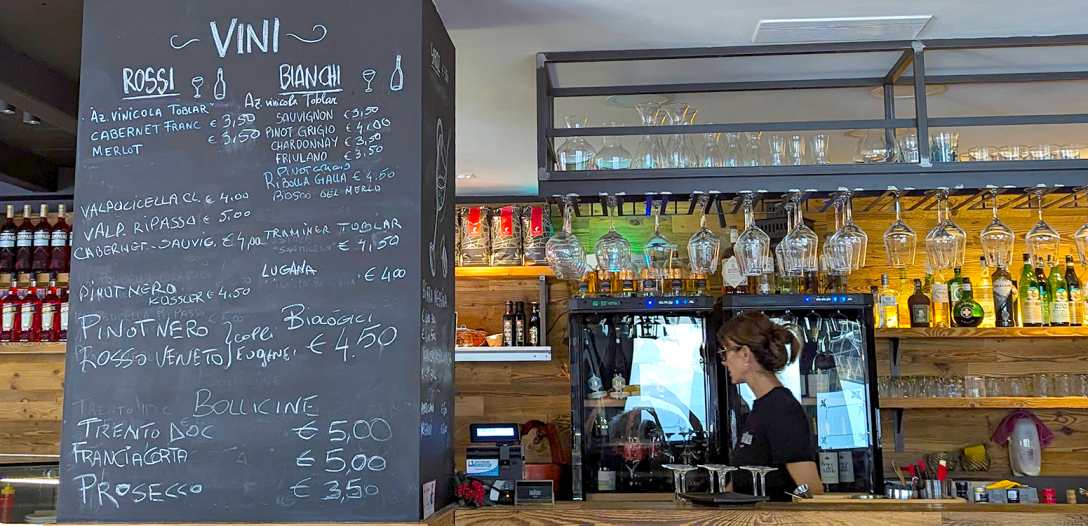 VINI
ROSSI
"AZ. VINICOLA TOBLAR"
CABERNET FRANC € 3,50
MERLOT € 3,50
VALPOLICELLA CL. € 4,00
VALP. RIPASSO € 5,00
CABERNET-SAUVIG. € 4,00
PINOT NERO
KÖSSLER € 4,50
BIANCHI
Az. vinicola Toblar
SAUVIGNON € 3,50
PINOT GRIGIO € 4,00
CHARDONNAY € 3,50
FRIULANO € 3,50
RIBOLLA GIALLA € 4,50
BOSCO DEL MERLO
TRAMINER TOBLAR
€ 4,50
LUGANA € 4,00
PINOT NERO
ROSSO VENETO
colli
EUGANEI
BIOLOGICI
€ 4.50
BOLLICINE
TRENTO DOC € 5,00
FRANCIACORTA € 5,00
PROSECCO € 3,50